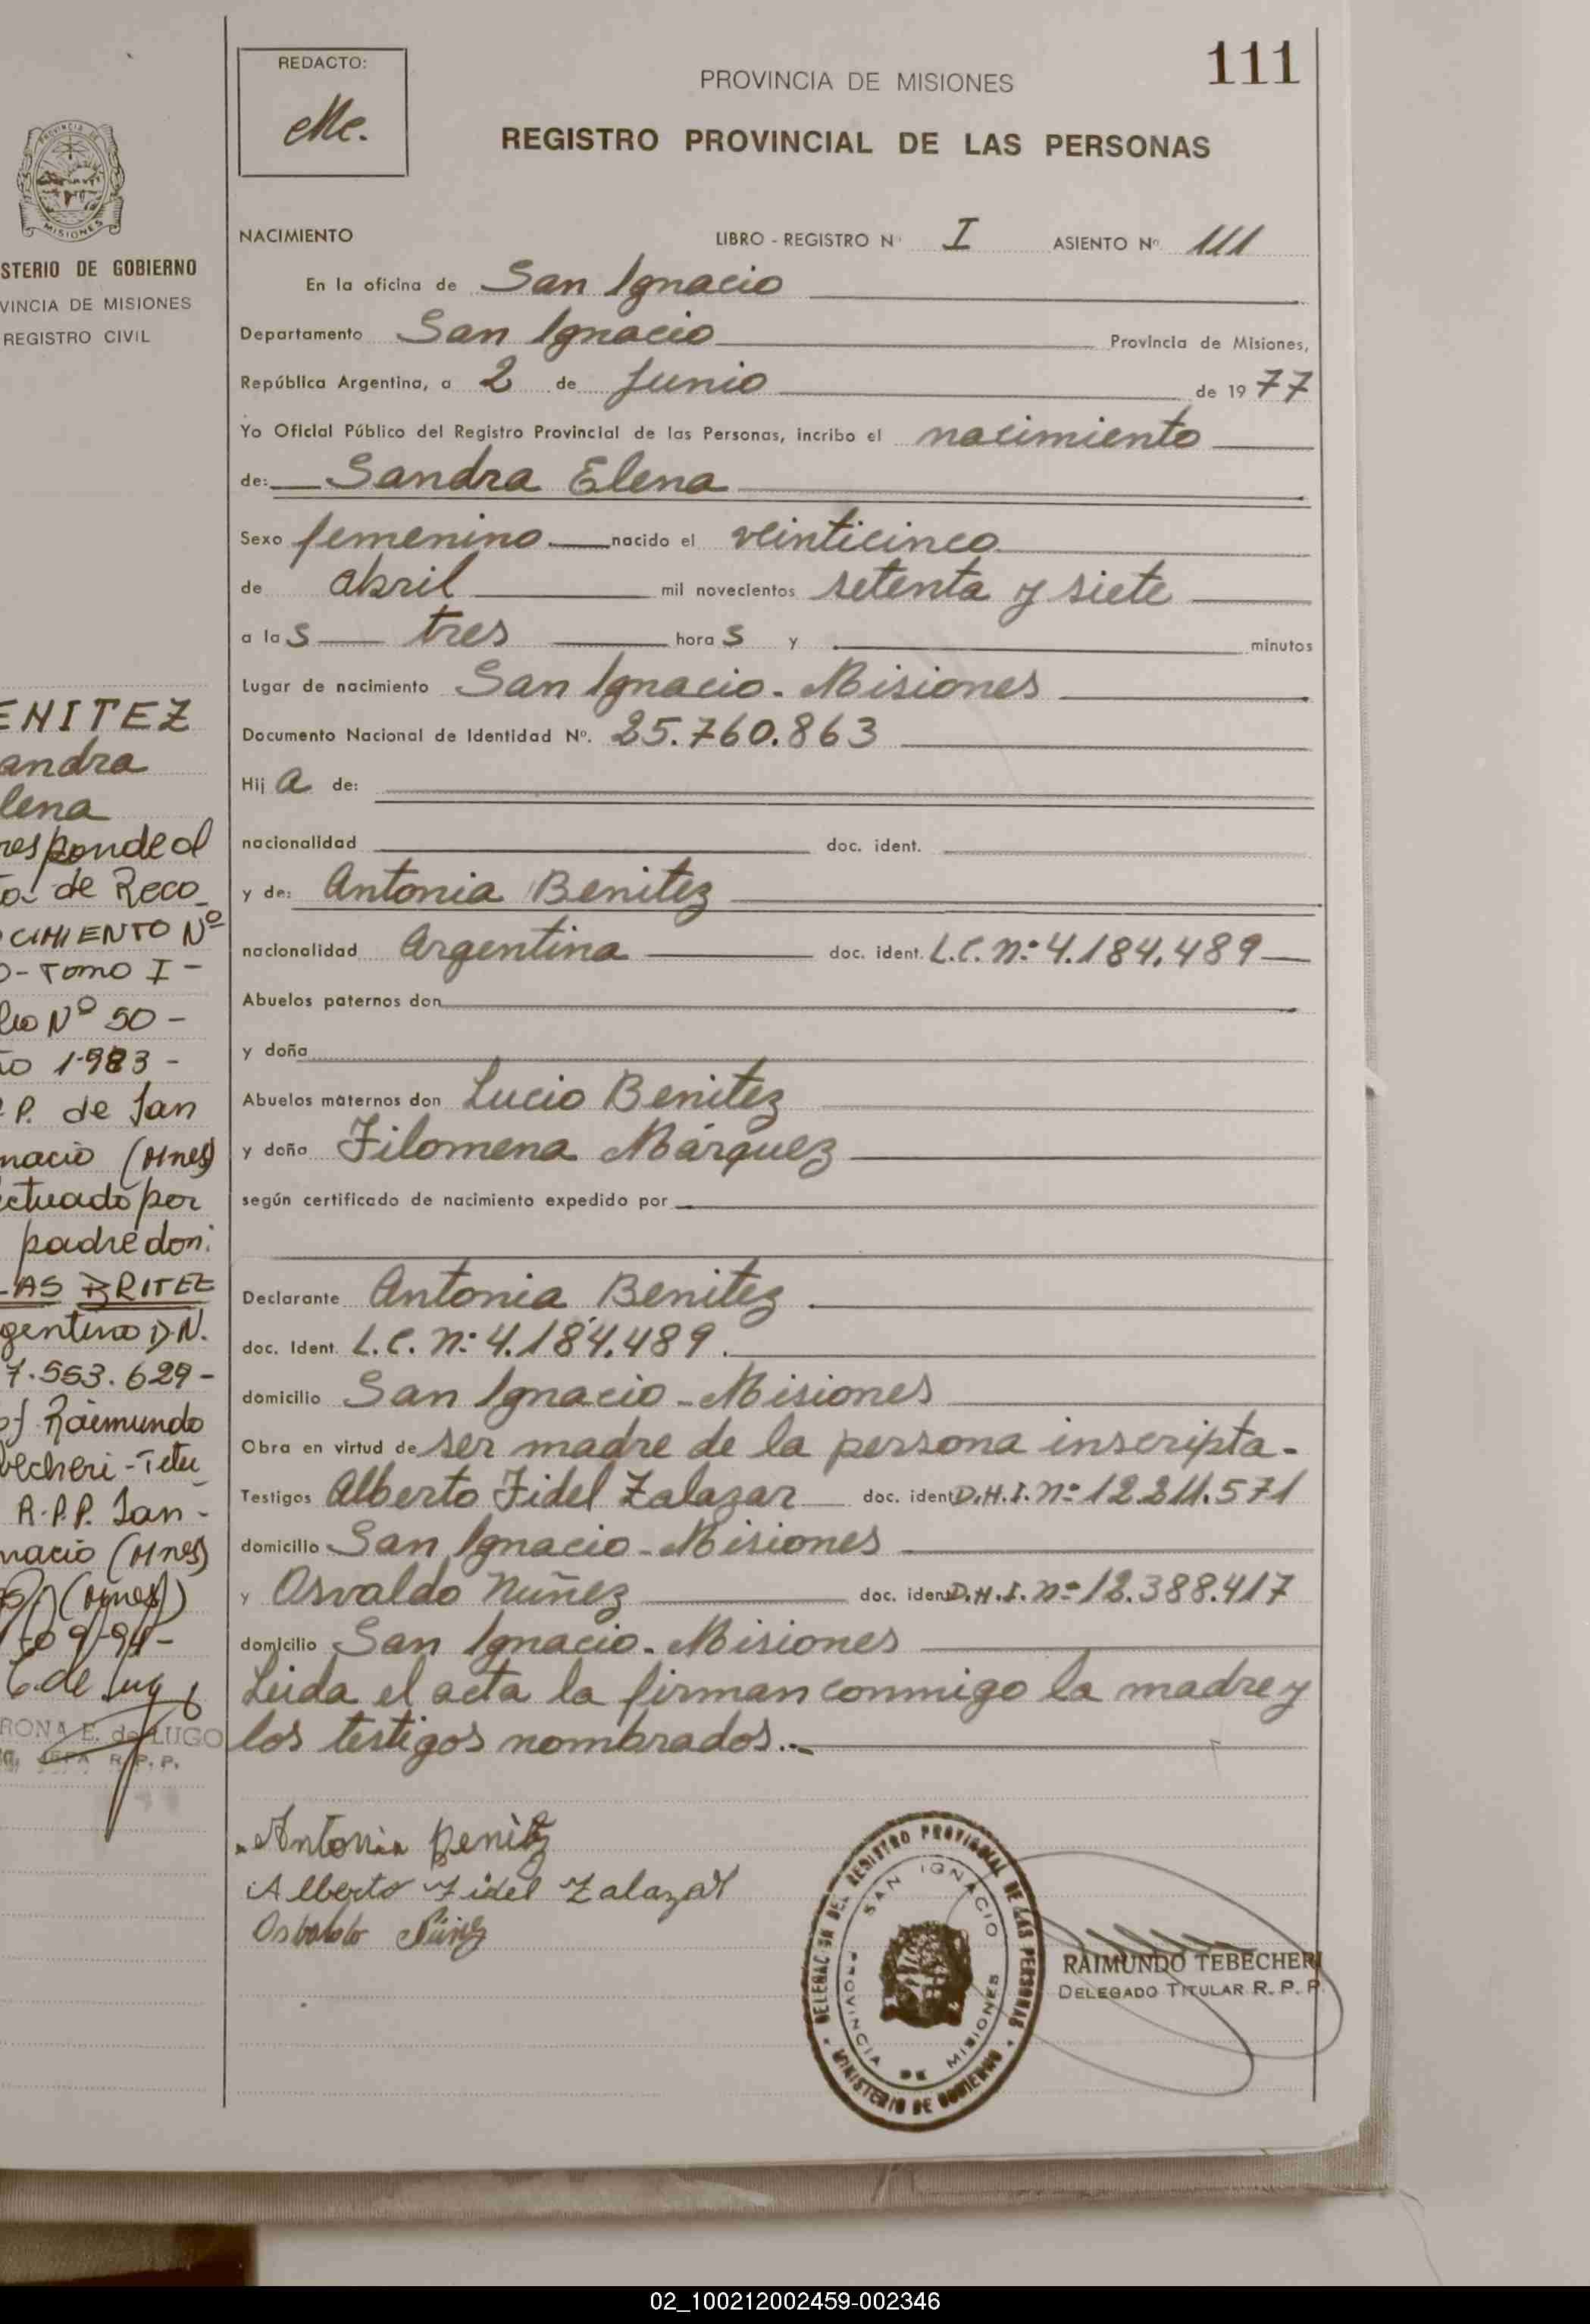 REDACTO:
PROVINCIA DE MISIONES
111
REGISTRO PROVINCIAL DE LAS PERSONAS
MISIONES
STERIO DE GOBIERNO
VINCIA DE MISIONES
REGISTRO CIVIL
ENITEZ
andra
lena
responde al
de Reco_
CIMIENTO Nº
O-Tomo I-
lio Nº 50-
ño 1983-
P. de San
nacio (Mnes)
ectuado por
padre don:
LAS BRITEZ
gentino D.N.
7.553.629-
Raimundo
becheri-Titu_
R.P.P. San-
nacio (Mnes)
(Mnes)
C. de Lug
RONA E. de LUGO
JEFA R.P.P.
NACIMIENTO LIBRO - REGISTRO Nº I ASIENTO Nº 111
En la oficina de San Ignacio
Departamento San Ignacio Provincia de Misiones,
República Argentina, a 2 de Junio de 1977
Yo Oficial Público del Registro Provincial de las Personas, incribo el nacimiento
de: Sandra Elena
Sexo femenino nacido el veinticinco
de abril mil novecientos setenta y siete
a las tres horas y minutos
Lugar de nacimiento San Ignacio - Misiones
Documento Nacional de Identidad Nº. 25.760.863
Hija de:
nacionalidad doc. ident.
y de: Antonia Benitez
nacionalidad Argentina doc. ident. L.C. nº 4.184.489
Abuelos paternos don
y doña
Abuelos maternos don Lucio Benitez
y doña Filomena Márquez
según certificado de nacimiento expedido por
Declarante Antonia Benitez
doc. Ident. L.C. nº 4.184.489.
domicilio San Ignacio - Misiones
Obra en virtud de ser madre de la persona inscripta.-
Testigos Alberto Fidel Zalazar doc. ident D.N.I. nº 12.211.571
domicilio San Ignacio - Misiones
y Osvaldo Núñez doc. ident D.N.I. nº 12.388.417
domicilio San Ignacio - Misiones
Leida el acta la firman conmigo la madre y
los testigos nombrados.-
Antonia Benitez
Alberto Fidel Zalazar
Osbaldo Núñez
DELEGACION DEL REGISTRO PROVINCIAL DE LAS PERSONAS
SAN IGNACIO
PROVINCIA DE MISIONES
MINISTERIO DE GOBIERNO
RAIMUNDO TEBECHERI
DELEGADO TITULAR R. P. P.
02_100212002459-002346